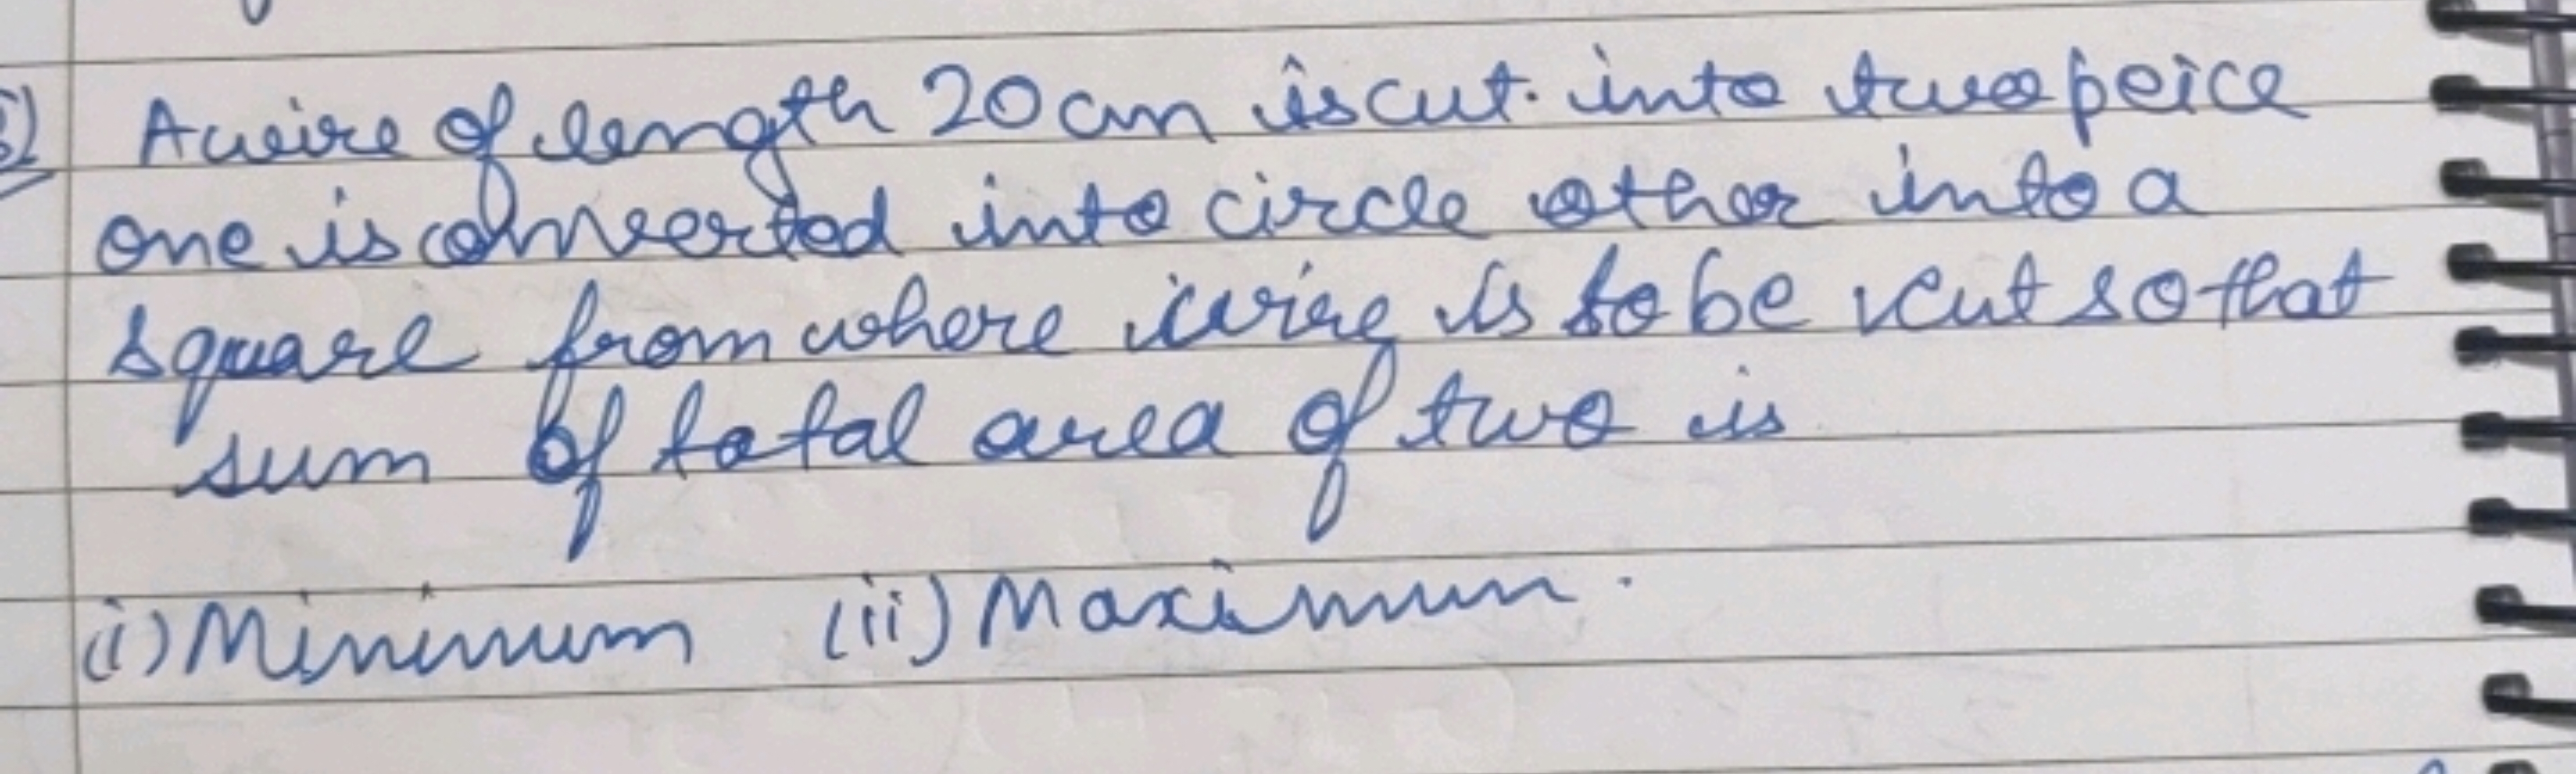 A wire of length 20 cm is cut. into two peice
one is converted into circle other into a
square from where wire is to be cut so that
sum of total area of two is
(i) Minimum (ii) Maximum.